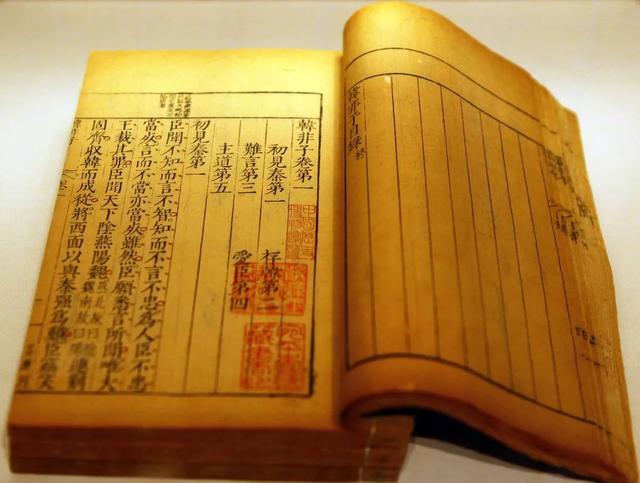 韓非子目錄終
韓非子卷第一
初見秦第一 存韓第二
難言第三 愛臣第四
主道第五
初見秦第一
臣聞不知而言不智知而不言不忠為人臣不忠
當死言而不當亦當死雖然臣願悉言所聞唯大
王裁其罪臣聞天下陰燕陽魏燕北故曰陰魏南故曰陽連荊
固齊收韓而成從將西面以與秦强為難臣竊笑
韓非子 卷一